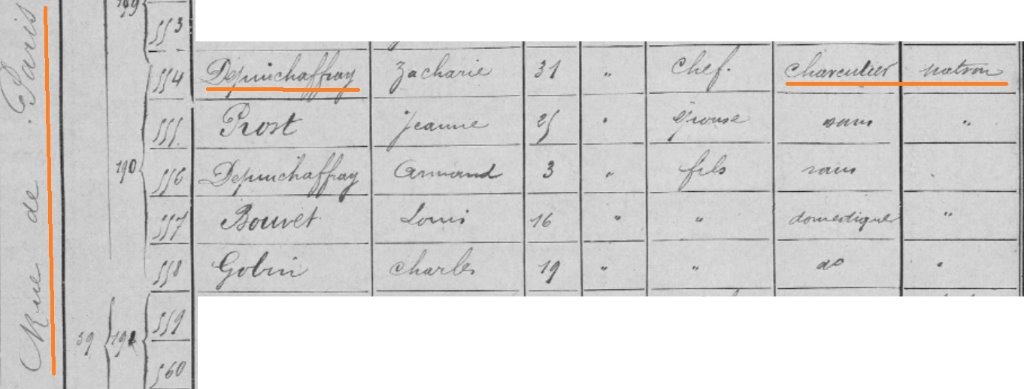 Rue de Paris
189
553
554 Depinchaffray Zacharie 31 " Chef. charcutier patron
555 Prost Jeanne 25 " épouse sans "
190
556 Depinchaffray Armand 3 " fils sans
557 Bouvet Louis 16 " " domestique "
558 Gobin Charles 19 " " do "
39 191 559
560